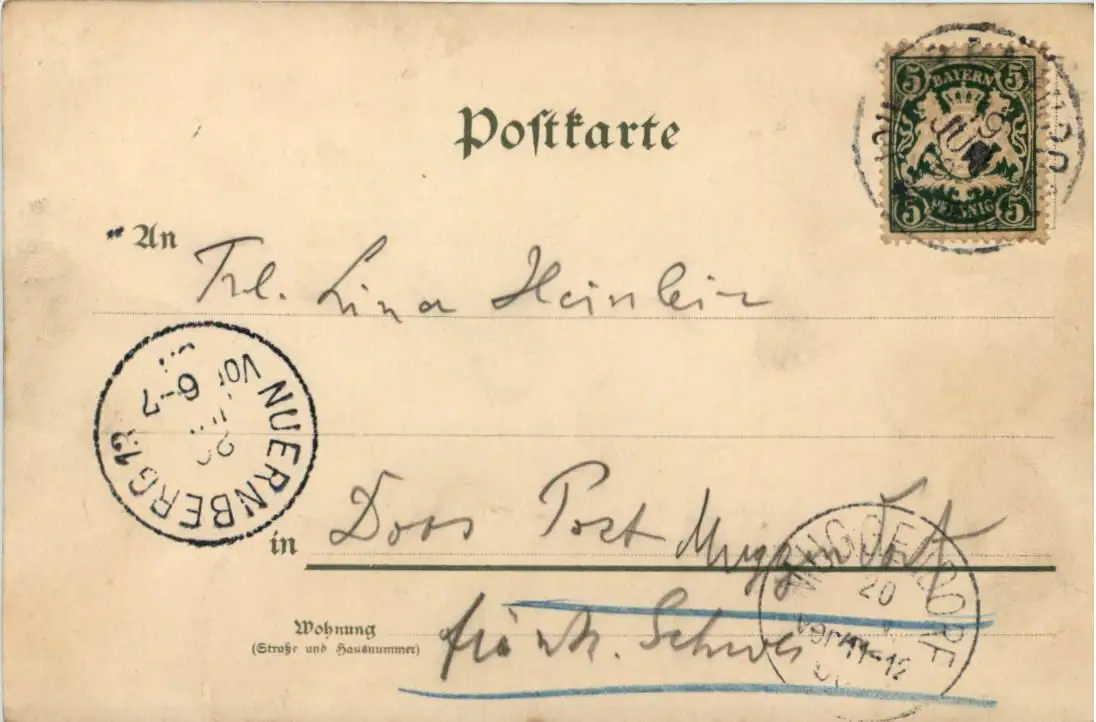 Postkarte
5 BAYERN 5
19
JUN
5 PFENNIG 5
An
Frl. Lina Heinlein
NUERNBERG 13
Vor 6-7
20
in Doos Post Muggendorf
fränk. Schweiz
Wohnung
(Straße und Hausnummer)
MUGGENDORF
20
Vor 11-12